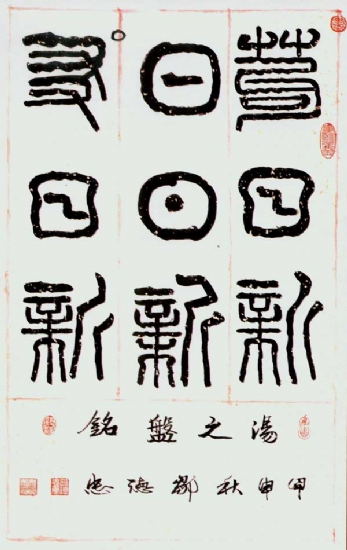 苟日新
日日新
又日新
湯之盤銘
甲申秋鄒德忠